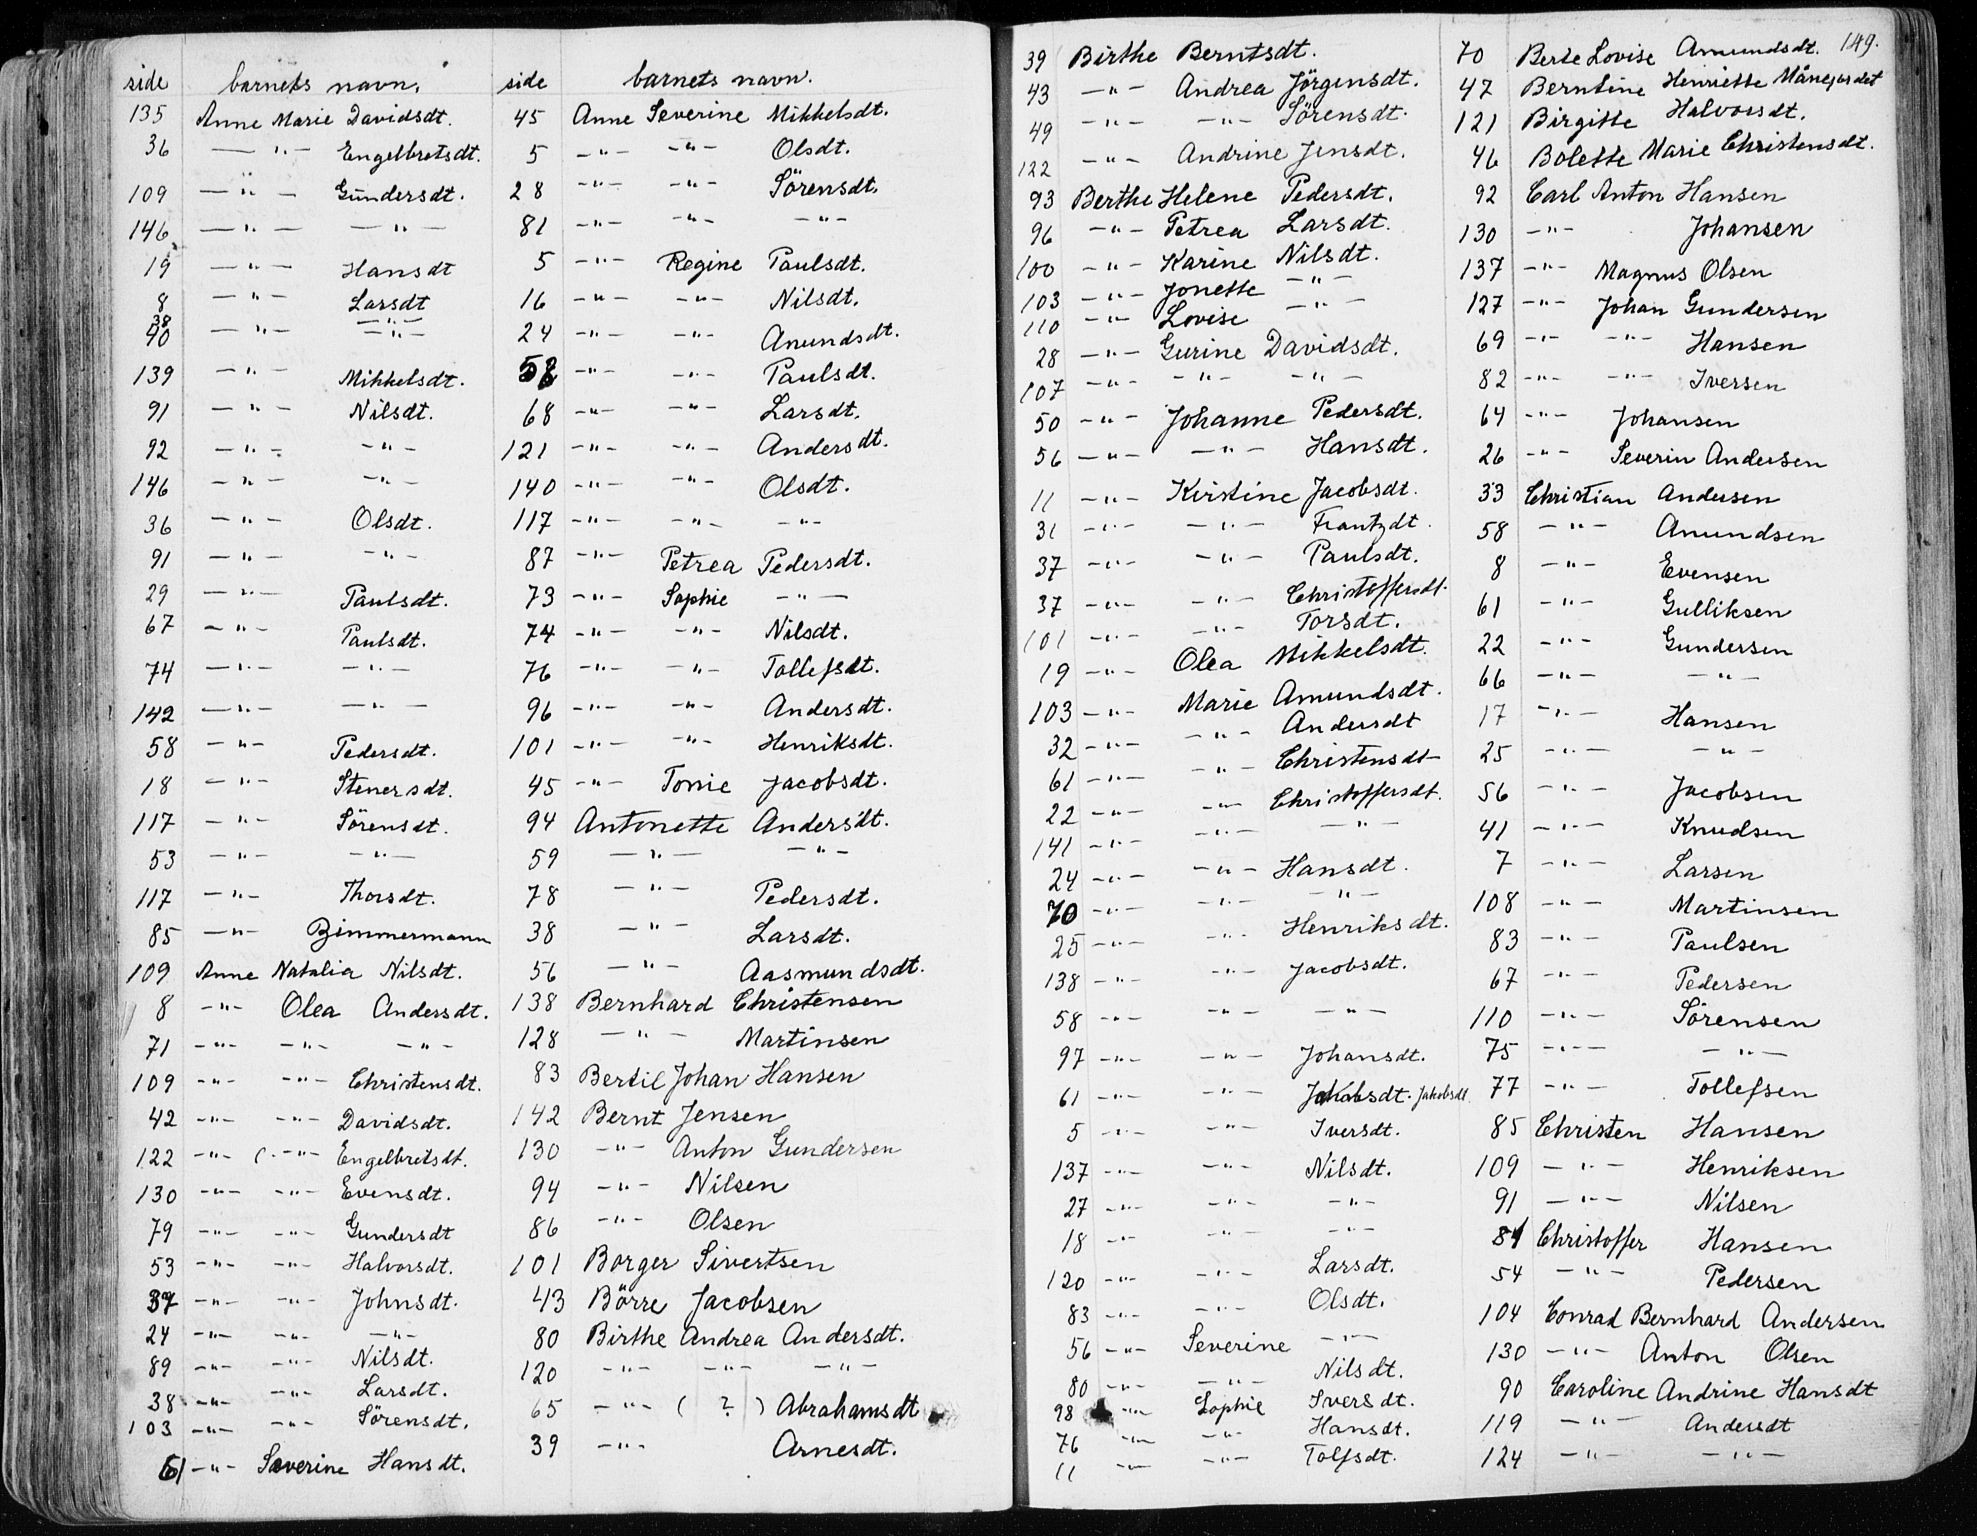 side barnets navn.
135 Anne Marie Davidsdt.
36 — " — Engelbretsdt.
109 — " — Gundersdt.
146 — " — — " —
19 — " — Hansdt
8 — " — Larsdt
38
40 — " — — " —
139 — " — Mikkelsdt.
91 — " — Nilsdt.
92 — " — — " —
146 — " — — " —
36 — " — Olsdt.
91 — " — — " —
29 — " — Paulsdt.
67 — " — Paulsdt.
74 — " — — " —
142 — " — — " —
58 — " — Pedersdt.
18 — " — Stenersdt.
117 — " — Sörensdt.
53 — " — — " —
117 — " — Thorsdt.
85 — " — Zimmermann
109 Anne Natalia Nilsdt.
8 — " — Olea Andersdt.
71 — " — — " — — " —
109 — " — — " — Christensdt.
42 — " — — " — Davidsdt.
122 — " — — " — Engelbretsdt.
130 — " — — " — Evensdt.
79 — " — — " — Gundersdt
53 — " — — " — Halvorsdt.
37 — " — — " — Johnsdt.
24 — " — — " — — " —
89 — " — — " — Nilsdt.
38 — " — — " — Larsdt.
103 — " — — " — Sörensdt.
61 — " — Severine Hansdt.
side barnets navn.
45 Anne Severine Mikkelsdt.
5 — " — — " — Olsdt.
28 — " — — " — Sörensdt.
81 — " — — " — — " —
5 — " — Regine Paulsdt.
16 — " — — " — Nilsdt.
24 — " — — " — Amundsdt.
58 — " — — " — Paulsdt.
68 — " — — " — Larsdt.
121 — " — — " — Andersdt.
140 — " — — " — Olsdt.
117 — " — — " — — " —
87 — " — Petrea Pedersdt.
73 — " — Sophie — " —
74 — " — — " — Nilsdt.
76 — " — — " — Tollefsdt.
96 — " — — " — Andersdt.
101 — " — — " — Henriksdt.
45 — " — Tonie Jacobsdt.
94 Antonette Andersdt.
59 — " — — " —
78 — " — Pedersdt.
38 — " — Larsdt.
56 — " — Aasmundsdt.
138 Bernhard Christensen
128 — " — Martinsen
83 Bertil Johan Hansen
142 Bernt Jensen
130 — " — Anton Gundersen
94 — " — Nilsen
86 — " — Olsen
101 Borger Sivertsen
43 Börre Jacobsen
80 Birthe Andrea Andersdt.
120 — " — — " — — " —
65 — " — ( ? ) Abrahamsdt
39 — " — Arnesdt.
39 Birthe Berntsdt.
43 — " — Andrea Jörgensdt.
49 — " — — " — Sörensdt.
122 — " — Andrine Jensdt.
93 Berthe Helene Pedersdt.
96 — " — Petrea Larsdt.
100 — " — Karine Nilsdt.
103 — " — Jonette — " —
110 — " — Lovise — " —
28 — " — Gurine Davidsdt.
107 — " — — " — — " —
50 — " — Johanne Pedersdt.
56 — " — — " — Hansdt.
11 — " — Kirstine Jacobsdt.
31 — " — — " — Frantzdt.
37 — " — — " — Paulsdt.
37 — " — — " — Christoffersdt.
101 — " — — " — Torsdt.
19 — " — Olea Mikkelsdt.
103 — " — Marie Amundsdt.
32 — " — — " — Andersdt
61 — " — — " — Christensdt
22 — " — — " — Christoffersdt.
141 — " — — " — — " —
24 — " — — " — Hansdt.
70 — " — — " — — " —
25 — " — — " — Henriksdt.
138 — " — — " — Jacobsdt.
58 — " — — " — — " —
97 — " — — " — Johansdt.
61 — " — — " — Jakobsdt. Jakobsdt
5 — " — — " — Iversdt.
137 — " — — " — Nilsdt.
27 — " — — " — — " —
18 — " — — " — — " —
120 — " — — " — Larsdt.
83 — " — — " — Olsdt.
56 — " — Severine — " —
80 — " — — " — Nilsdt.
98 — " — Sophie Iversdt.
76 — " — — " — Hansdt.
11 — " — — " — Tolfsdt.
149.
70 Berte Lovise Amundsdt.
47 Berntine Henriette
121 Birgitte Halvorsdt.
46 Bolette Marie Christensdt.
92 Carl Anton Hansen
130 — " — Johansen
137 — " — Magnus Olsen
127 — " — Johan Gundersen
69 — " — — " — Hansen
82 — " — — " — Iversen
64 — " — Johansen
26 — " — Severin Andersen
33 Christian Andersen
58 — " — Amundsen
8 — " — Evensen
61 — " — Gulliksen
22 — " — Gundersen
66 — " — — " —
17 — " — Hansen
25 — " — — " —
56 — " — Jacobsen
41 — " — Knudsen
7 — " — Larsen
108 — " — Martinsen
83 — " — Paulsen
67 — " — Pedersen
110 — " — Sörensen
75 — " — — " —
77 — " — Tollefsen
85 Christen Hansen
109 — " — Henriksen
91 — " — Nilsen
84 Christoffer Hansen
54 — " — Pedersen
104 Conrad Bernhard Andersen
130 — " — Anton Olsen
90 Caroline Andrine Hansdt
119 — " — Andersdt
124 — " — — " —